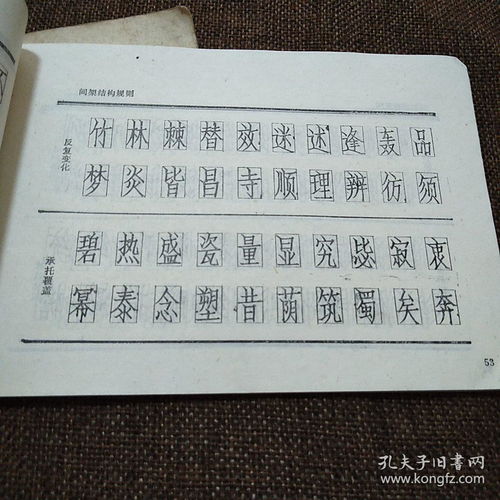 间架结构规则
反复变化
竹林棘替效迷述逢轰品
梦炎皆昌寺顺理辨彷须
承托覆盖
碧热盛瓷量显究毖寂衷
幂泰念塑昔荫筑蜀矣奔
53
孔夫子旧书网
www.kongfz.com